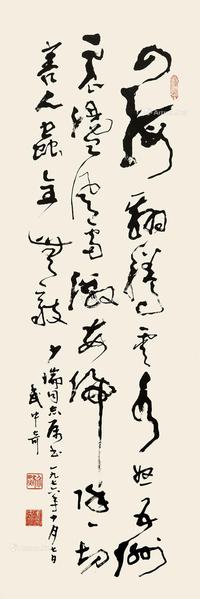 四海翻騰雲水怒五洲
震盪風雷激要掃除一切
害人蟲全無敵
瑞同志属書一九七六年十月七日
武中奇